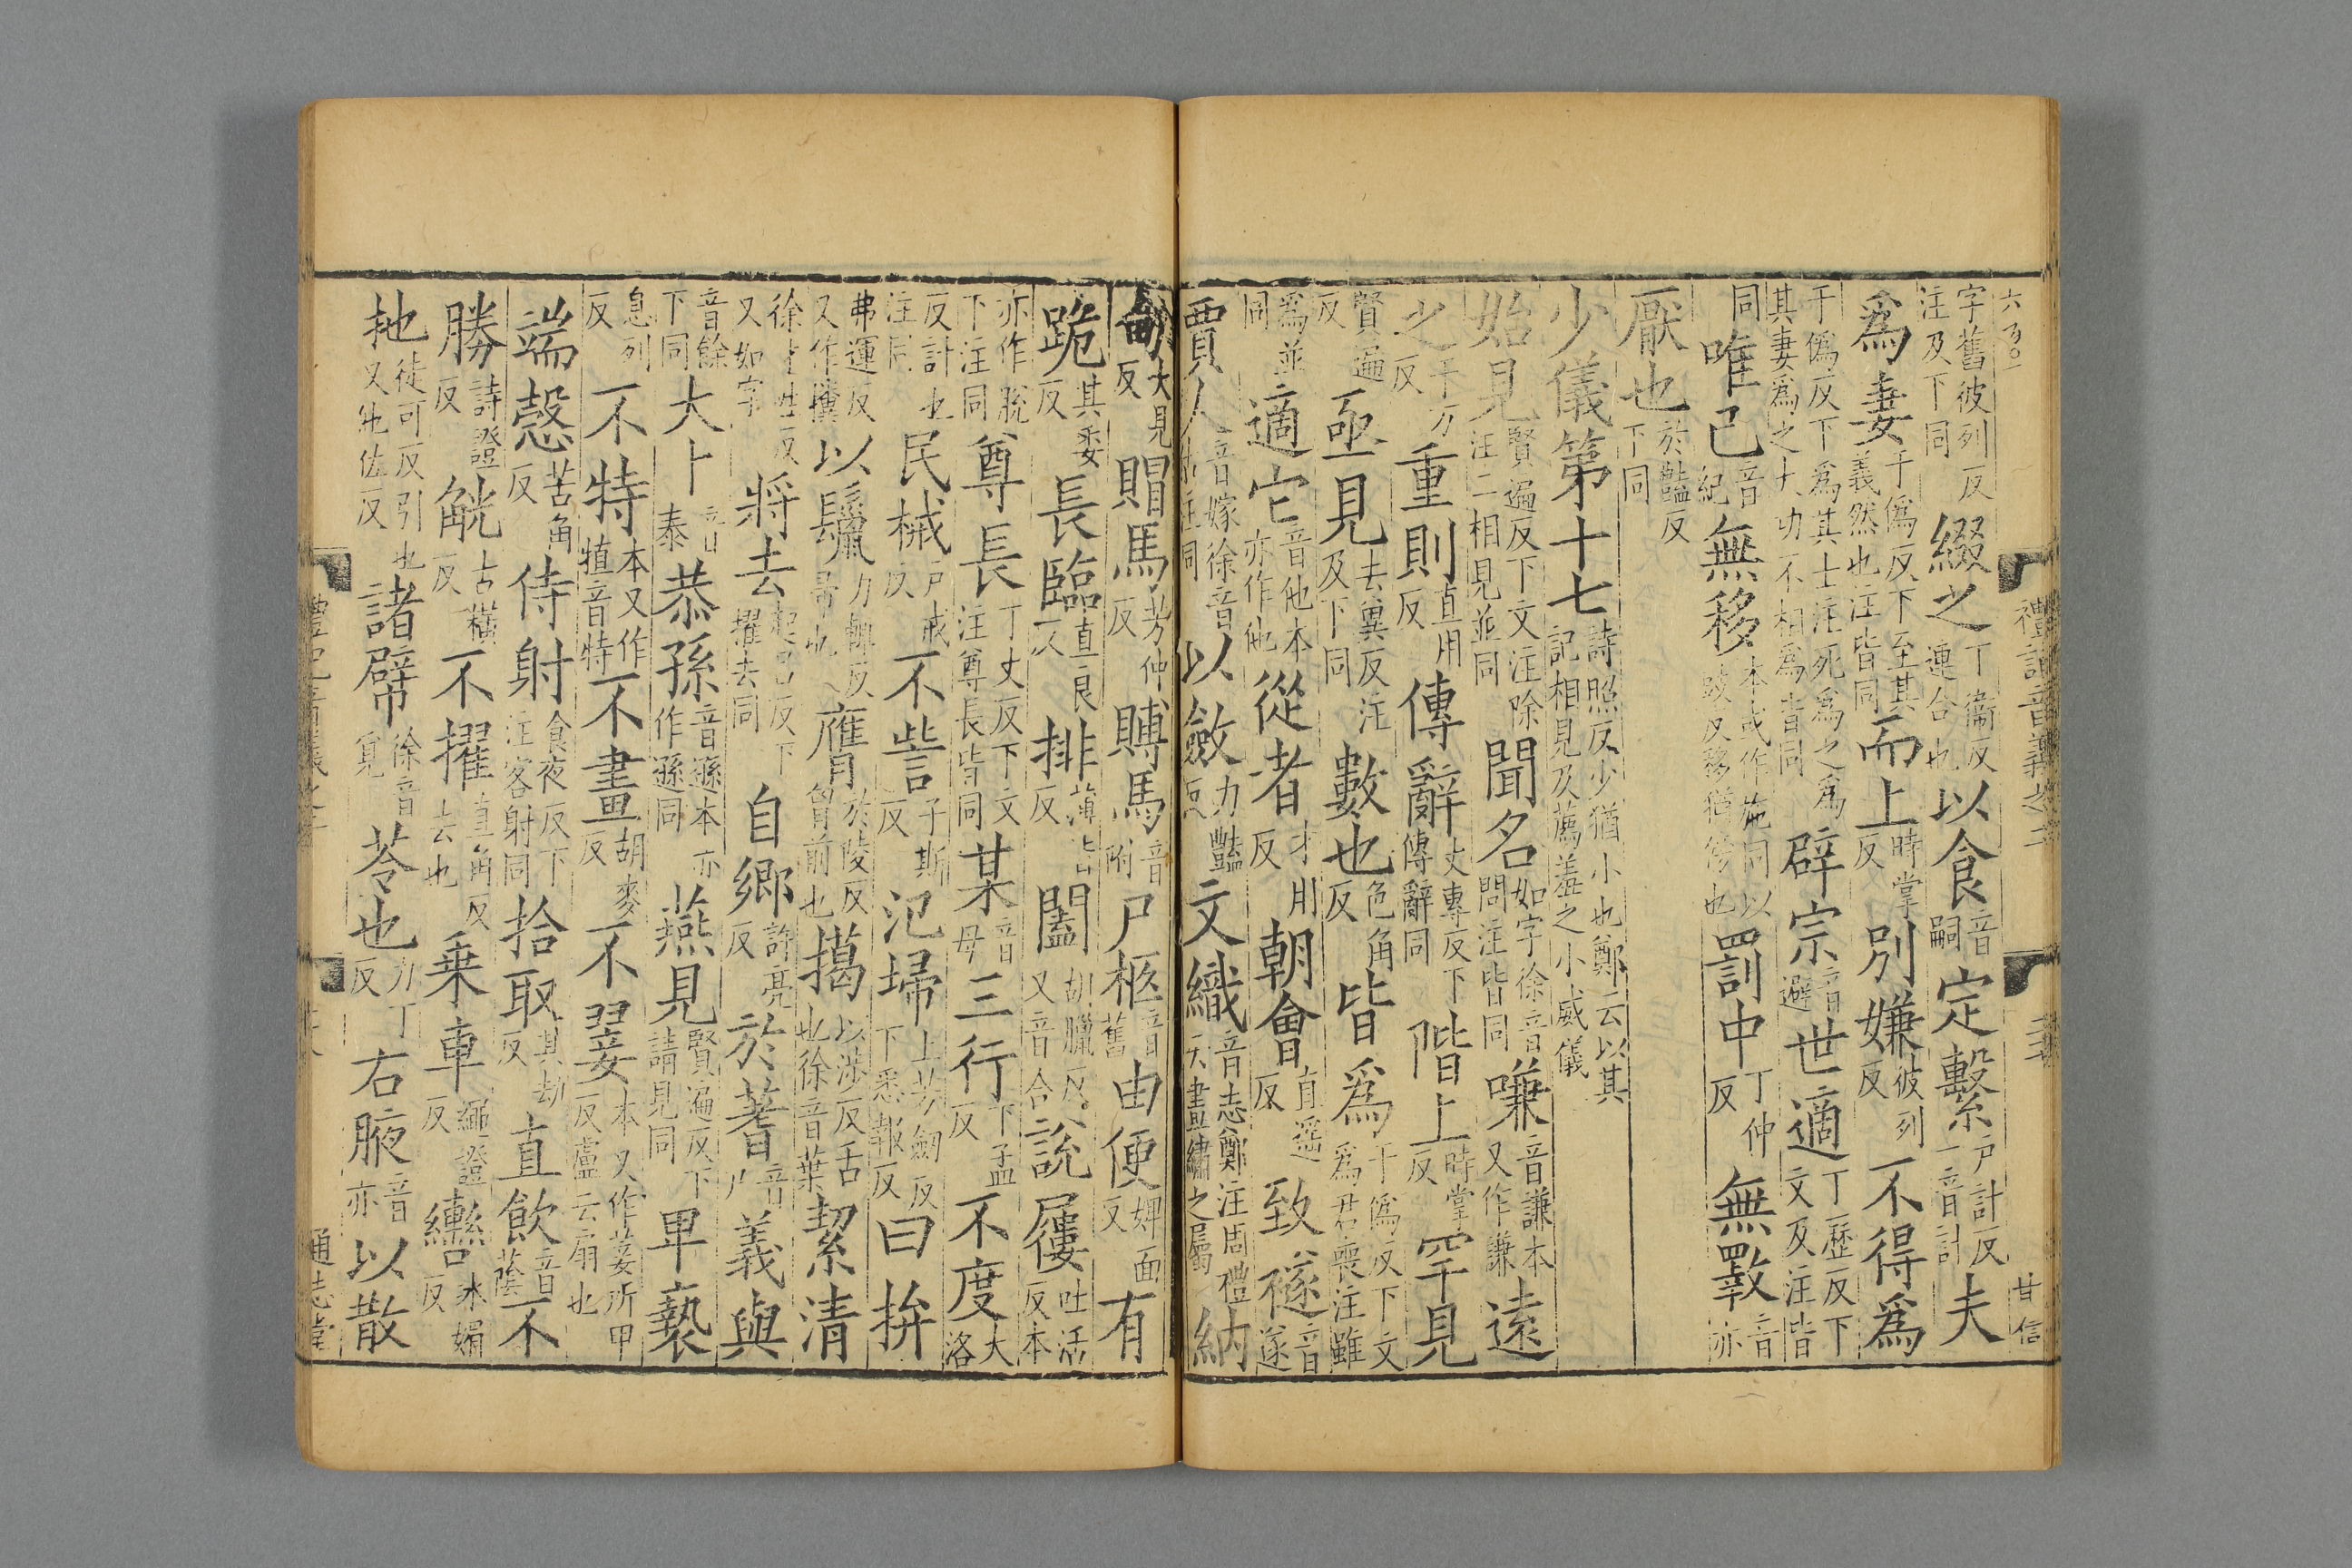 字舊彼列反注及下同綴之丁衞反連合也以食音嗣定繫戶計反一音計夫
爲妻于僞反下至其義然也注皆同而上時掌反別嫌彼列反不得爲
于僞反下爲其士注死爲之爲其妻爲之大功不相爲皆同辟宗音避世適丁歷反下文及注皆
同唯己音紀無移本或作施同以豉反移猶傍也罰中丁仲反無斁音亦
厭也於豔反下同
少儀第十七詩照反少猶小也鄭云以其記相見及薦羞之小威儀
始見賢遍反下文注除注二相見並同聞名如字徐音問注皆同嗛音謙本又作謙遠
之于万反重則直用反傳辭丈專反下傳辭同階上時掌反罕見
賢遍反亟見去冀反注及下同數也色角反皆爲于僞反下文爲君喪注雖
爲並同適它音他本亦作他從者才用反朝會直遥反致襚音遂
賈人音嫁徐音注同以斂力豔反文織音志鄭注周禮云畫繡之屬納
甸大見反賵馬芳仲反賻馬音附尸柩音舊由便婢面反有
跪其委反長臨直良反排薄皆反闔胡臘反又音合說屨吐活反本
亦作脫下注同尊長丁丈反下文注尊長皆同某音母三行下孟反不度大洛
反計也注同民械戶戒反不訾子斯反氾埽上芳劒反下悉報反曰拚
弗運反又作㩳以鬛力輒反帚也膺於陵反胷前也擖以涉反舌也徐音葉絜清
徐才性反又如字將去起呂反下擢去同自鄉許亮反於蓍音尸義與
音餘下同大卜音泰恭孫音遜本亦作遜同燕見賢遍反下請見同卑褻
息列反不特本又作犆音特不畫胡麥反不翣本又作萐所甲反盧云扇也
端慤苦角反侍射食夜反下注客射同拾取其劫反直飲音蔭不
勝詩證反觥古橫反不擢直角反去也乗車繩證反轡冰媚反
拖徒可反引也又他佐反諸幦徐音覓苓也力丁反右腋音亦以散
六百〇一
禮記音義之二
甘信
禮記音義之二
通志堂